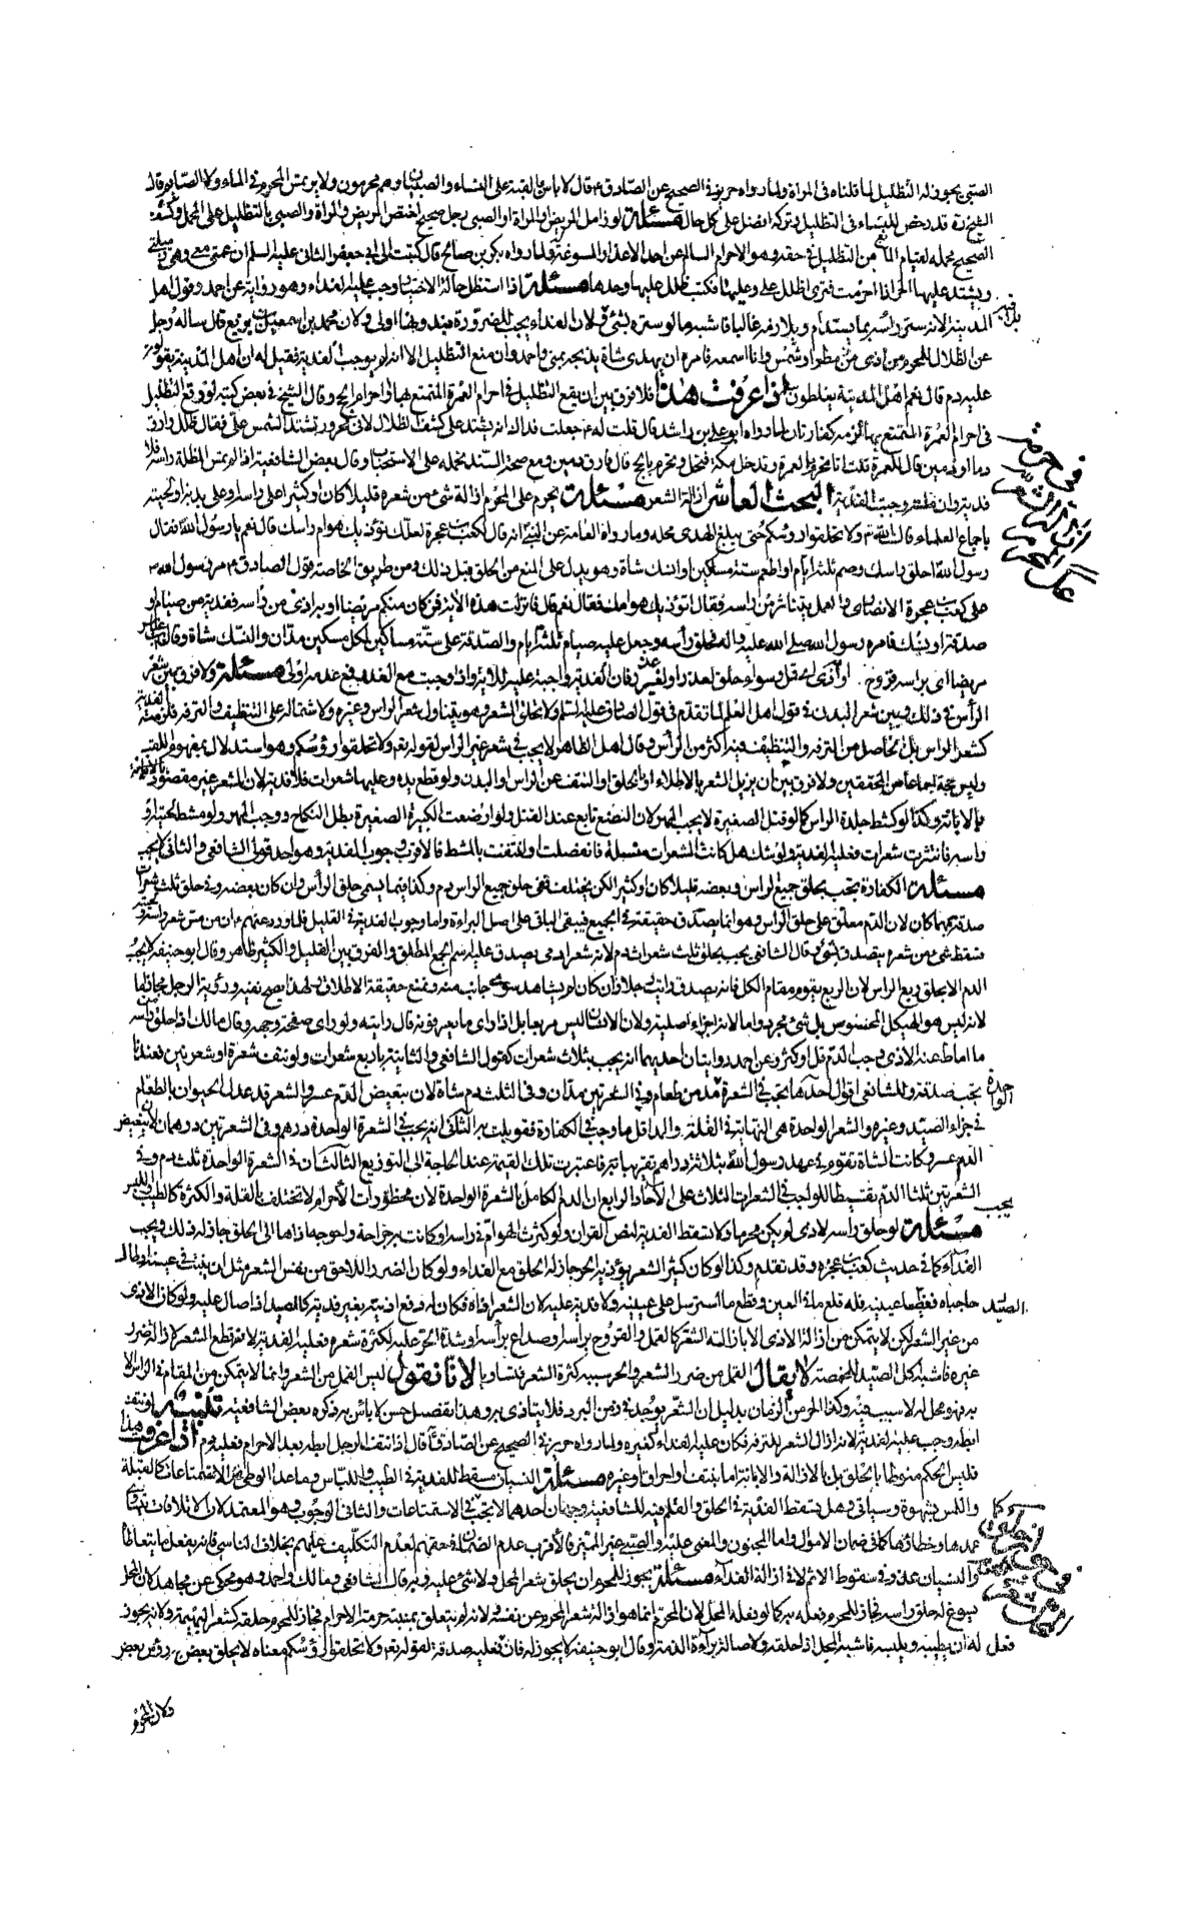 الصبي يجوز له التظليل لما قلناه في المرأة ولما رواه حريز في الصحيح عن الصادق ع قال لا باس بالقبة على النساء والصبيان وهم محرمون ولا يرتمس المحرم في الماء ولا الصايم قال
الشيخ ره قد رخص للنساء في التظليل وتركه افضل على كل حال مسئلة لو زامل المريض والمرأة او الصبي رجل صحيح اختص المريض والمرأة والصبي بالتظليل على المحمل وكشف
الصحيح محمله لقيام المانع من التظليل في حقه وهو الاحرام السالم عن احد الاعذار المسوغة ولما رواه بكر بن صالح قال كتبت الى ابي جعفر الثاني عليه السلم ان عمتي معي وهي زميلتي
ويشتد عليها الحر اذا احرمت فترى اظلل علي وعليها فكتب ظلل عليها وحدها مسئلة اذا استظل حالة الاختيار وجب عليه الفداء وهو رواية عن احمد وقول اهل
المدينة لانه ستر راسه بما يستدام ويلازمه غالبا فاشبه ما لو ستره بشيء يلاقيه ولان الفداء يجب للضرورة فبدونها اولى ولان محمد بن اسمعيل بن بزيع قال ساله رجل
عن الظلال للمحرم من اذى من مطر او شمس وانا اسمعه فامره ان يهدي شاة يذبحه بمنى واحمد وان منع التظليل الا انه لم يوجب الفدية فقيل له ان اهل المدينة يقولون
عليه دم قال نعم اهل المدينة يغلطون اذا عرفت هذا فلا فرق بين ان يقع التظليل في احرام العمرة المتمتع بها او احرام الحج وقال الشيخ في بعض كتبه لو وقع التظليل
في احرام العمرة المتمتع بها لزمه كفارتان لما رواه ابو علي بن راشد قال قلت له ع جعلت فداك انه يشتد على كشف الظلال لاني محرور تشتد الشمس علي فقال ظلل وارق
دما او دمين قال للعمرة قلت انا نحرم بالعمرة وندخل مكة فنحل ونحرم بالحج قال فارق دمين ومع صحة السند نحمله على الاستحباب وقال بعض الشافعية اذا لم يمس المظلة راسه فلا
فدية وان مسته وجبت الفدية البحث العاشر ازالة الشعر مسئلة يحرم على المحرم ازالة شيء من شعره قليلا كان او كثيرا على راسه او على بدنه او لحيته
باجماع العلماء قال الله تع ولا تحلقوا رؤسكم حتى يبلغ الهدي محله وما رواه العامة عن النبي ص انه قال لكعب بن عجرة لعلك تؤذيك هوام راسك قال نعم يا رسول الله فقال
رسول الله احلق راسك وصم ثلثة ايام او اطعم ستة مساكين او انسك شاة وهو يدل على المنع من الحلق قبل ذلك ومن طريق الخاصة قول الصادق ع مر رسول الله ص
على كعب بن عجرة الانصاري والقمل يتناثر من راسه فقال اتوذيك هوامك فقال نعم قال فانزلت هذه الآية فمن كان منكم مريضا او به اذى من راسه ففدية من صيام او
صدقة او نسك فامره رسول الله صلى الله عليه واله فحلق رأسه وجعل عليه صيام ثلثة ايام والصدقة على ستة مساكين لكل مسكين مدان والنسك شاة وقال ابن عباس
مريضا اي براسه قروح او اذى اي قمل وسواء حلق لعذر او لغير عذر فان الفدية واجبة عليه للاية واذا وجبت مع العذر فمع عدمه اولى مسئلة ولا فرق بين شعر
الرأس في ذلك وبين شعر البدن في قول اهل العلم لما تقدم في قول الصادق عليه السلم ولا تحلق الشعر وهو يتناول شعر الراس وغيره ولاشتماله على التنظيف والترفه فلزمته الفدية
كشعر الراس بل الحاصل من الترفه والتنظيف فيه اكثر من الرأس وقال اهل الظاهر لا يجب في شعر غير الراس لقوله تع ولا تحلقوا رؤسكم وهو استدلال بمفهوم اللقب
وليس حجة اجماعا من المحققين ولا فرق بين ان يزيل الشعر بالاطلاء او بالحلق او النتف عن الراس او البدن ولو قطع يده وعليها شعرات فلا فدية لان الشعر غير مقصود بالابانة
بالابانة وكذا لو كشط جلدة الراس كما لو قتل الصغيرة لا يجب المهر لان البضع تابع عند القتل ولو ارضعت الكبيرة الصغيرة بطل النكاح ووجب المهر ولو مشط لحيته او
راسه فانتثرت شعرات فعليه الفدية ولو شك هل كانت الشعرات منسلة فانفصلت او انتتفت بالمشط فالاقرب وجوب الفدية وهو احد قولي الشافعي والثاني لا يجب
مسئلة الكفارة تجب بحلق جميع الراس وبعضه قليلا كان او كثيرا لكن يختلف ففي حلق جميع الراس دم وكذا فيما يسمى حلق الرأس وان كان بعضه وفي حلق ثلث شعرات
صدقة مهما كان لان الدم معلق على حلق الراس وهو انما يصدق حقيقة في الجميع فيبقى الباقي على اصل البراءة واما وجوب الفدية في القليل فلما ورد عنهم ع ان من مس شعر راسه او لحيته
فسقط شيء من شعره يتصدق بشيء وقال الشافعي يجب بحلق ثلث شعرات دم لانه شعر ادمي يصدق عليه اسم الجمع المطلق والفرق بين القليل والكثير ظاهر وقال ابو حنيفة لا يجب
الدم الا بحلق ربع الراس لان الربع يقوم مقام الكل فانه يصدق رايت رجلا وان كان لم يشاهد سوى جانب منه ونمنع حقيقة الاطلاق ولهذا يصح نفيه ورؤية الرجل مجاز لها
لانه ليس هو الهيكل المحسوس بل شيء مجرد واما لانه اجزاء اصلية ولان الانسان ليس مربعا بل اذا راى ما يعرفونه قال رايته ولو راى صفحة وجهه وقال مالك اذا حلق من راسه
ما اماط عنه الاذى وجب الدم قل او كثر وعن احمد روايتان احديهما انه يجب بثلاث شعرات كقول الشافعي والثانية باربع شعرات ولو نتف شعرة او شعرتين فعندنا
تجب صدقة وللشافعي اقوال احدها تجب في الشعرة الواحدة مد من طعام وفي الشعرتين مدان وفي الثلث دم شاة لان تبعيض الدم عسر والشعر قد عدل الحيوان بالطعام
في جزاء الصيد وغيره والشعرة الواحدة هي النهاية في القلة والمد اقل ما وجب في الكفارة فقوبلت به الثاني انه يجب في الشعرة الواحدة درهم وفي الشعرتين درهمان لان تبعيض
الدم عسر وكانت الشاة تقوم في عهد رسول الله بثلاثة دراهم تقريبا فاعتبرت تلك القيمة عند الحاجة الى التوزيع الثالث ان في الشعرة الواحدة ثلث دم وفي
الشعرتين ثلثا الدم تقسيطا للواجب في الشعرات الثلاث على الآحاد الرابع ان الدم الكامل يجب بالشعرة الواحدة لان محظورات الاحرام لا تختلف بالقلة والكثرة كالطيب واللبس
مسئلة لو حلق راسه لاذى لم يكن محرما ولا تسقط الفدية لنص القران ولو كثرت الهوام في راسه او كانت به جراحة واحوجه اذاها الى الحلق جاز له ذلك ويجب
الفداء كما في حديث كعب بن عجرة وقد تقدم وكذا لو كان كثير الشعر يؤذيه الحر جاز له الحلق مع الفداء ولو كان الضرر اللاحق من نفس الشعر مثل ان ينبت في عينه او طال
حاجباه فغطيا عينيه فله قلع ما في العين وقطع ما استرسل على عينيه ولا فدية عليه لان الشعر اذاه فكان له دفع اذيته بغير فدية كالصيد اذا صال عليه ولو كان الاذى
من غير الشعر لكن لا يتمكن من ازالة الاذى الا بازالة الشعر كالقمل والقروح براسه او صداع براسه او شدة الحر عليه لكثرة شعره فعليه الفدية لانه قطع الشعر لازالة ضرر
غيره فاشبه اكل الصيد للمخمصة لا يقال القمل من ضرر الشعر والحر سببه كثرة الشعر فتساويا لانا نقول ليس القمل من الشعر وانما لا يتمكن من المقام في الراس الا
به فهو محل له لا سبب فيه وكذا الحر من الزمان بدليل ان الشعر يوجد في زمن البرد فلا يتاذى به وهذا تفصيل حسن لا باس به ذكره بعض الشافعية تذنيب لو نتف
ابطه وجب عليه الفدية لانه ازال الشعر للترفه فكان عليه الفداء كغيره ولما رواه حريز في الصحيح عن الصادق ع قال اذا نتف الرجل ابطه بعد الاحرام فعليه دم اذا عرفت هذا
فليس الحكم منوطا بالحلق بل بالازالة والابانة اما بنتف او احراق او غيره مسئلة النسيان مسقط للفدية في الطيب واللباس وما عدا الوطي من الاستمتاعات كالقبلة
واللمس بشهوة وسياتي وهل يسقط الفدية في الحلق والقلم فيه للشافعية وجهان احدهما لا يجب كما في الاستمتاعات والثاني الوجوب وهو المعتمد لان الاتلافات يتساوى
عمدها وخطاؤها كما في ضمان الاموال واما المجنون والمغمى عليه والصبي غير المميز فالاقرب عدم الضمان في حقهم لعدم التكليف عليهم بخلاف الناسي فانه يفعل ما يتعاطاه
والنسيان عذر في سقوط الاثم لا في ازالة الفداء مسئلة يجوز للمحرم ان يحلق شعر المحل ولا شيء عليه وبه قال الشافعي ومالك واحمد وهو محكي عن مجاهد لان المحل
يسوغ له حلق راسه فجاز للمحرم فعله به كما لو فعله المحل لان المحرم انما هو ازالة شعر المحرم عن نفسه ولانه لم يتعلق بمنبته حرمة الاحرام فجاز للمحرم حلقه كشعر البهيمة ولانه يجوز
فعل له ان يطيبه ويلبسه فاشبه المحل اذا حلقه ولاصالة براءة الذمة وقال ابو حنيفة لا يجوز له فان فعل فعليه صدقة لقوله تع ولا تحلقوا رؤسكم معناه لا يحلق بعض رؤس بعض
ولان المحرم
في حرمة ازالة الشعر على المحرم